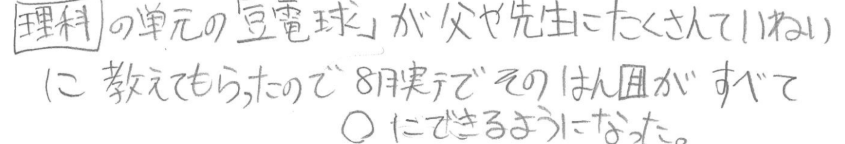 理科の単元の「豆電球」が父や先生にたくさんていねい
に教えてもらったので8月実テでそのはん囲がすべて
○にできるようになった。